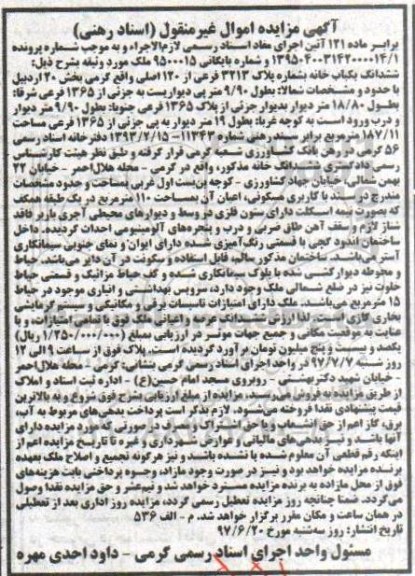 آگهی مزایده اموال غیرمنقول (اسناد رهنی)
برابر ماده ۱۲۱ آئین اجرای مفاد اسناد رسمی لازم‌الاجراء و به موجب شماره پرونده
۱۳۹۵۰۴۰۰۳۱۴۲۰۰۰۰۱۴/۱ و شماره بایگانی ۹۵۰۰۰۱۵ ملک مورد وثیقه بشرح ذیل:
ششدانگ یکباب خانه بشماره پلاک ۳۲۱۳ فرعی از ۱۲۰ اصلی واقع گرمی بخش ۲۰ اردبیل
با حدود و مشخصات شمالا: بطول ۹/۹۰ متر پی دیواریست به جزئی از ۱۳۶۵ فرعی شرقا:
بطول ۱۸/۸۰ متر دیوار بدیوار جزئی از پلاک ۱۳۶۵ فرعی جنوبا: بطول ۹/۹۰ متر دیوار
و درب ورود است به کوچه غربا: بطول ۱۹ متر دیوار به پی جزئی از ۱۳۶۵ فرعی مساحت
۱۸۷/۱۱ مترمربع برابر سند رهنی شماره ۱۱۳۴۳ – ۱۳۹۳/۲/۱۵ دفترخانه اسناد رسمی
۵۶ گرمی در رهن بانک کشاورزی شعبه گرمی قرار گرفته و طبق نظر هیئت کارشناس
رسمی دادگستری ششدانگ خانه مذکور، واقع در گرمی – محله هلال‌احمر – خیابان ۲۲
بهمن شمالی خیابان جهاد کشاورزی – کوچه بن‌بست اول غربی بمساحت و حدود مشخصات
مندرج در سند با کاربری مسکونی، اعیان آن بمساحت ۱۱۰ مترمربع در یک طبقه همکف
که بصورت نیمه اسکلت دارای ستون فلزی در وسط و دیوارهای محیطی آجری باربر فاقد
شناژ لازم و سقف آهن طاق ضربی و درب و پنجره‌های آلومینیومی احداث گردیده. داخل
ساختمان اندود گچی با قسمتی رنگ‌آمیزی شده دارای ایوان و نمای جنوبی سیمانکاری
آستر می‌باشد. ساختمان مذکور سالم، قابل استفاده و سکونت در آن دایر می‌باشد. حیاط
و محوطه دیوارکشی شده با بلوک سیمانکاری شده و کف حیاط موزائیک و قسمتی حیاط
خلوت نیز در ضلع شمالی ملک وجود دارد، سرویس بهداشتی و انباری موجود در حیاط
۱۵ مترمربع می‌باشد. ملک دارای امتیازات تاسیسات برقی و مکانیکی و سیستم گرمایشی
بخاری گازی است. لذا ارزش ششدانگ عرصه و اعیانی ملک فوق با تمامی امتیازات، و با
عنایت به موقعیت مکانی و جمیع جهات موثر در ارزیابی بمبلغ (۱/۲۵۰/۰۰۰/۰۰۰ ریال)
یکصد و بیست و پنج میلیون تومان برآورد گردیده است. پلاک فوق از ساعت ۹ الی ۱۲
روز شنبه ۹۷/۷/۷ در واحد اجرای اسناد رسمی گرمی بنشانی: گرمی – محله هلال‌احمر
– خیابان شهید دکتر بهشتی – روبروی مسجد امام حسین(ع) – اداره ثبت اسناد و املاک
از طریق مزایده به فروش می‌رسد. مزایده از مبلغ ارزیابی بشرح فوق شروع و به بالاترین
قیمت پیشنهادی نقدا فروخته می‌شود. لازم بذکر است پرداخت بدهی‌های مربوط به آب،
برق، گاز اعم از حق انشعاب و یا حق اشتراک و مصرف در صورتی که مورد مزایده دارای
آنها باشد و نیز بدهی‌های مالیاتی و عوارض شهرداری و غیره تا تاریخ مزایده اعم از
اینکه رقم قطعی آن معلوم شده یا نشده باشد و نیز هرگونه تجمیع و اصلاح ملک بعهده
برنده مزایده خواهد بود و نیز در صورت وجود مازاد، وجوه پرداختی بابت هزینه‌های
فوق از محل مازاده به برنده مزایده مسترد خواهد شد و نیم‌عشر و حق مزایده نقدا وصول
می‌گردد. ضمنا چنانچه روز مزایده تعطیل رسمی گردد، مزایده روز اداری بعد از تعطیلی
در همان ساعت و مکان مقرر برگزار خواهد شد. م – الف ۵۳۶
تاریخ انتشار: روز سه‌شنبه مورخ ۹۷/۶/۲۰
مسئول واحد اجرای اسناد رسمی گرمی – داود احدی مهره